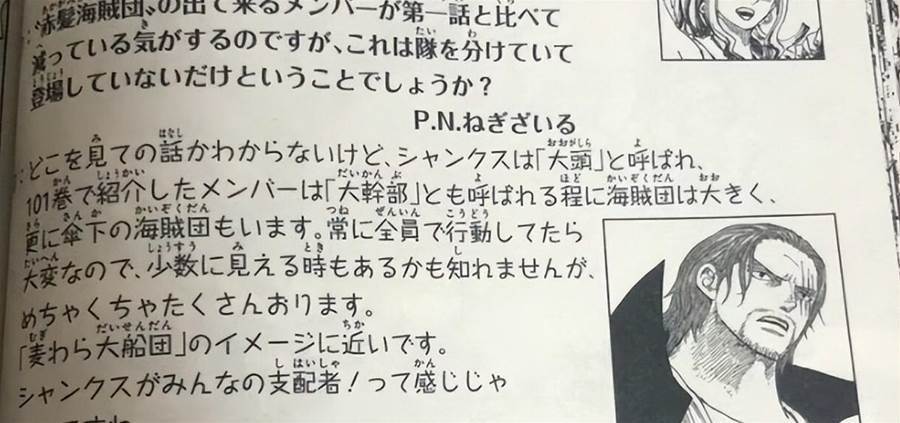 赤髪海賊団、の出て来るメンバーが第一話と比べて
減っている気がするのですが、これは隊を分けていて
登場していないだけということでしょうか？
P.N.ねぎざいる
：どこを見ての話かわからないけど、シャンクスは「大頭」と呼ばれ、
101巻で紹介したメンバーは「大幹部」とも呼ばれる程に海賊団は大きく、
更に傘下の海賊団もいます。常に全員で行動してたら
大変なので、少数に見える時もあるかも知れませんが、
めちゃくちゃたくさんおります。
「麦わら大船団」のイメージに近いです。
シャンクスがみんなの支配者！って感じじゃ